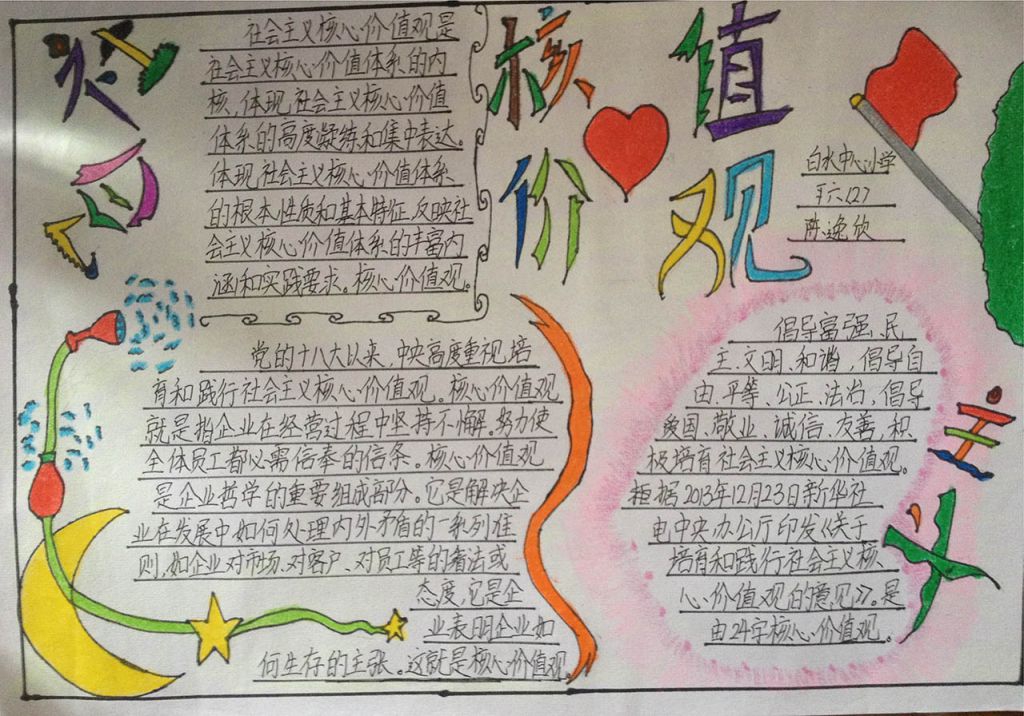 社会主义
核心价值观
白水中心小学
六(2)
陈逸欣
社会主义核心价值观是
社会主义核心价值体系的内
核,体现社会主义核心价值
体系的高度凝练和集中表达。
体现社会主义核心价值体系
的根本性质和基本特征,反映社
会主义核心价值体系的丰富内
涵和实践要求。核心价值观。
党的十八大以来,中央高度重视培
育和践行社会主义核心价值观。核心价值观
就是指企业在经营过程中坚持不懈。努力使
全体员工都必需信奉的信条。核心价值观
是企业哲学的重要组成部分。它是解决企
业在发展中如何处理内外矛盾的一系列准
则,如企业对市场、对客户、对员工等的看法或
态度,它是企
业表明企业如
何生存的主张。这就是核心价值观
倡导富强、民
主、文明、和谐,倡导自
由、平等、公正、法治,倡导
爱国、敬业、诚信、友善,积
极培育社会主义核心价值观。
据2013年12月23日新华社
电中央办公厅印发《关于
培育和践行社会主义核
心价值观的意见》。是
由24字核心价值观。